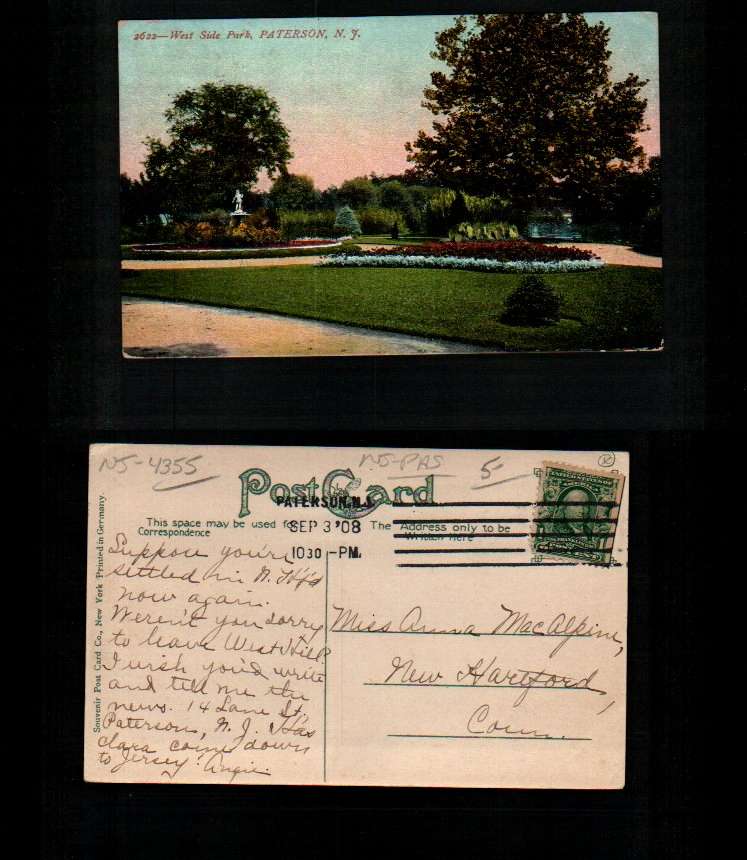 2622—West Side Park, PATERSON, N. J.
NJ-4355
NJ-PAS
5-
Post Card
PATERSON, N.J.
SEP 3 '08
1030 -PM.
This space may be used for
Correspondence
The Address only to be
Written Here
UNITED STATES OF
AMERICA
Souvenir Post Card Co., New York Printed in Germany.
Suppose you're
settled in N. H'f'd
now again.
Weren't you sorry
to leave West Hill.
I wish you'd write
and tell me the
news. 14 Lane St.
Paterson, N. J. Has
Clara come down
to Jersey? Angie.
Miss Anna MacAlpine,
New Hartford,
Conn.